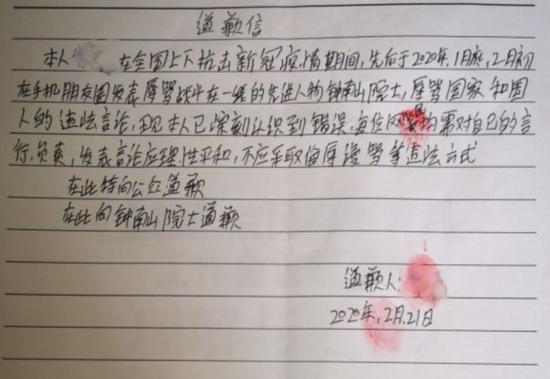 道歉信
本人 在全国上下抗击新冠疫情期间,先后于2020年,1月底,2月初
在手机朋友圈发表辱骂战斗在一线的先进人物钟南山院士,辱骂国家和国
人的违法言论,现本人已深刻认识到错误,每位网民均需对自己的言
行,负责,发表言论应理性平和,不应采取侮辱谩骂等违法方式
在此特向公众道歉
在此向钟南山院士道歉
道歉人:
2020年,2月,21日